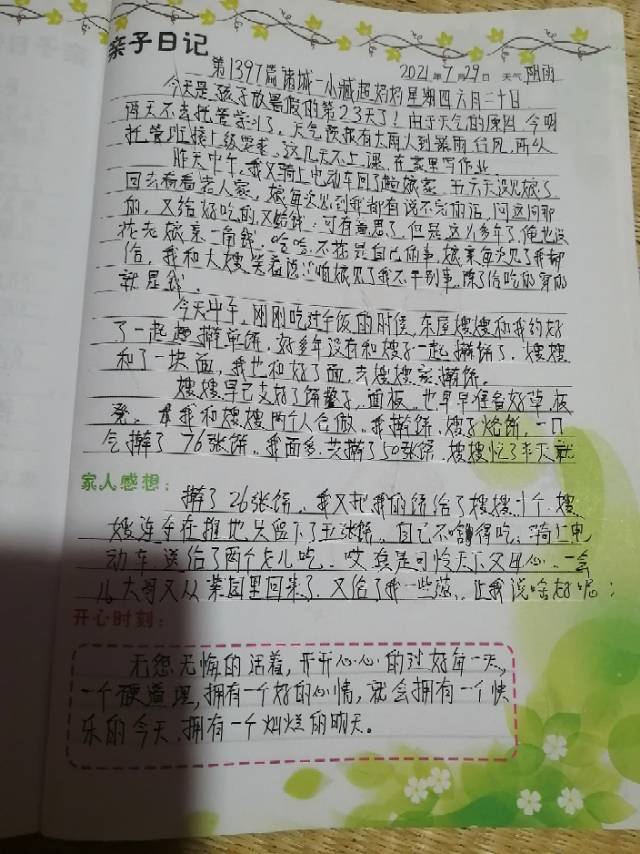 亲子日记
第1397篇诸城一小臧超妈妈星期四六月二十日
2021年7月29日 天气阴雨
今天是孩子放暑假的第23天了！由于天气的原因，今明
两天不去托管学习了。天气预报有大雨人到暴雨狂风，所以
托管班接上级要求，这几天不上课，在家里写作业。
昨天中午，我又骑上电动车回了趟娘家，五六天没见娘了
回去看看老人家，娘每次见到我都有说不完的话，问这问那
的，又给好吃的又给钱，可有意思了，但是这么多年了俺也没
花老娘亲一角钱，哈哈，不 是自己的事，娘亲每次见了我都
给，我和大嫂笑着说：咱娘见了我不干别事，除了给吃的穿的
就是钱。
今天中午，刚刚吃过午饭的时侯，东屋嫂嫂和我约好
了一起 擀单饼，好多年没有和嫂子一起擀饼了，嫂嫂
和了一块面，我也和好了面，去嫂嫂家擀饼。
嫂嫂早已支好了饼鏊子，面板，也早早准备好草，板
凳。我和嫂嫂两个人合做，我擀饼，嫂子烧饼，一口
气擀了76张饼，我面多，共擀了50张饼，嫂嫂忙了半天就
家人感想：
擀了26张饼，我又把我的饼给了嫂嫂十个，嫂
嫂连夺在推地只留下了五张饼，自己不舍得吃，骑上电
动车，送给了两个老儿吃，哎真是可怜天下父母心，一会
儿大哥又从菜园里回来了，又给了我一些葱，让我说啥好呢：
开心时刻：
无怨无悔的活着，开开心心的过好每一天，
一个硬道理，拥有一个好的心情，就会拥有一个快
乐的今天，拥有一个灿烂的明天。